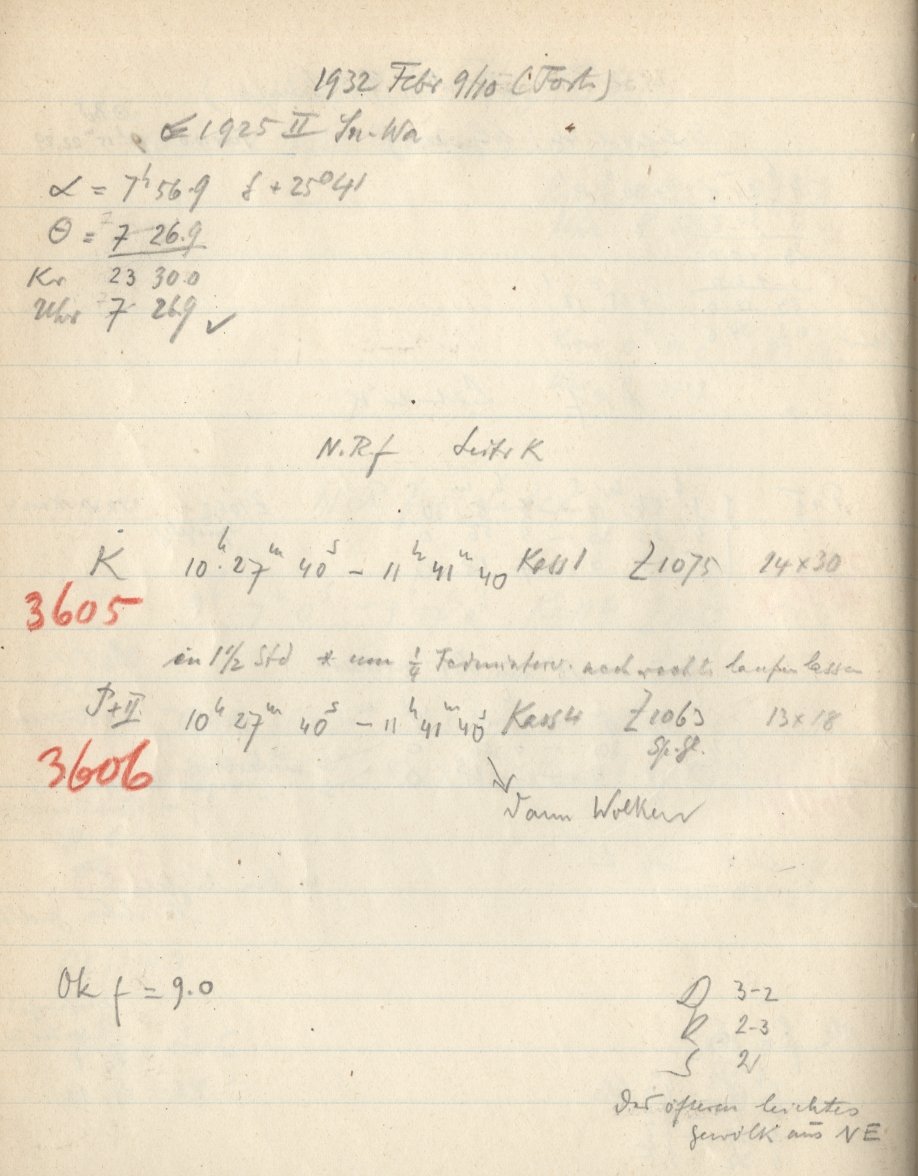 1932 Febr 9/10 (Forts)
1925 II
α = 7h 56.9 δ + 25° 41
Θ = 7 26.9
Kr 23 30.0
Uhr 7 26.9 ✓
N.Rf
K 10h 27m 40s – 11h 41m 40 Kass 1 Z 1075 24 x 30
3605
in 1 1/2 Std * um 1/4 nach rechts laufen lassen
P+II 10h 27m 40s – 11h 41m 40s Kass 4 Z 1063 13 x 18
Sp. Gl.
3606
dann Wolken
Ok f = 9.0
D 3-2
R 2-3
S 2
Des öfteren leichtes
Gewölk aus NE